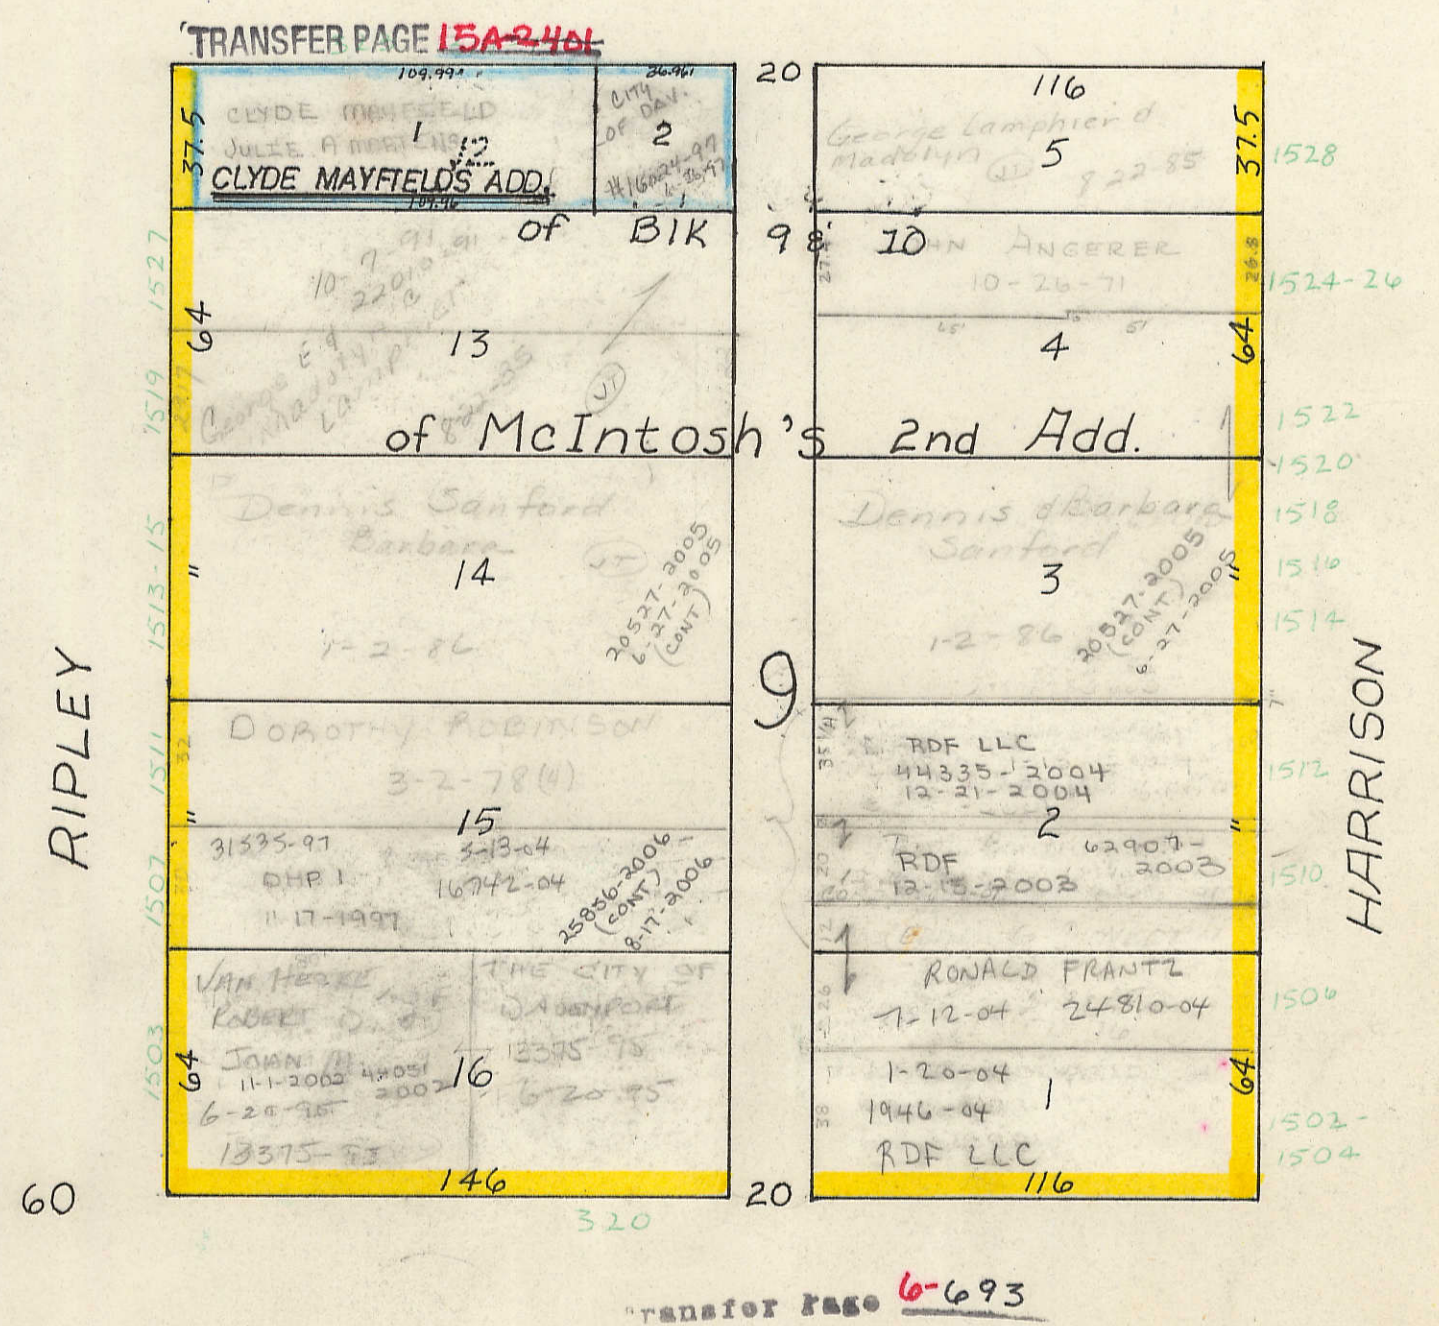 TRANSFER PAGE 15A-2401
109.99
36.96
20
116
37.5
CLYDE MAYFIELD
JULIE A MARTENS
1
12
CLYDE MAYFIELD'S ADD.
109.96
CITY
OF DAV.
2
#16024-97
George Lamphier &
Madolyn
JT
5
8 22-85
37.5
1528
of BlK 9 & 10
1527
10-7-91
64
13
1519
George E &
Madolyn
Lamphier
8-22-85
JT
HN ANGERER
10-26-71
26.8
1524-26
4
64
1522
of McIntosh's 2nd Add.
1520
Dennis Sanford
Barbara
JT
14
"
1-2-86
20527-2005
6-27-2005
(CONT)
1513-15
Dennis & Barbara
Sanford
3
"
1-2-86
20527-2005
(CONT)
6-27-2005
1518
1516
1514
RIPLEY
9
HARRISON
1511
32
DOROTHY ROBINSON
3-2-78(4)
15
"
1507
31535-97
DHP 1
11 17-1997
5-13-04
16742-04
25856-2006
(CONT)
8-17-2006
RDF LLC
44335-2004
12-21-2004
1512
2
"
RDF
12-15-2003
62907-
2003
1510
20
12
VAN HECKE
ROBERT D
JOAN M
11-1-2002
2002
6-20-95
13375-95
THE CITY OF
DAVENPORT
13375-95
6-20-95
16
64
1503
146
RONALD FRANTZ
7-12-04 24810-04
1506
26
1-20-04
1946-04
RDF LLC
1
38
64
1502-
1504
116
60
20
320
Transfer Page 6-693